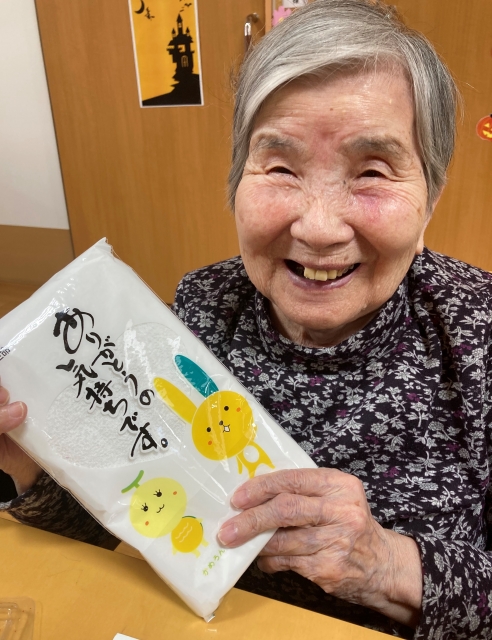 ありがとうの
気持ちです。